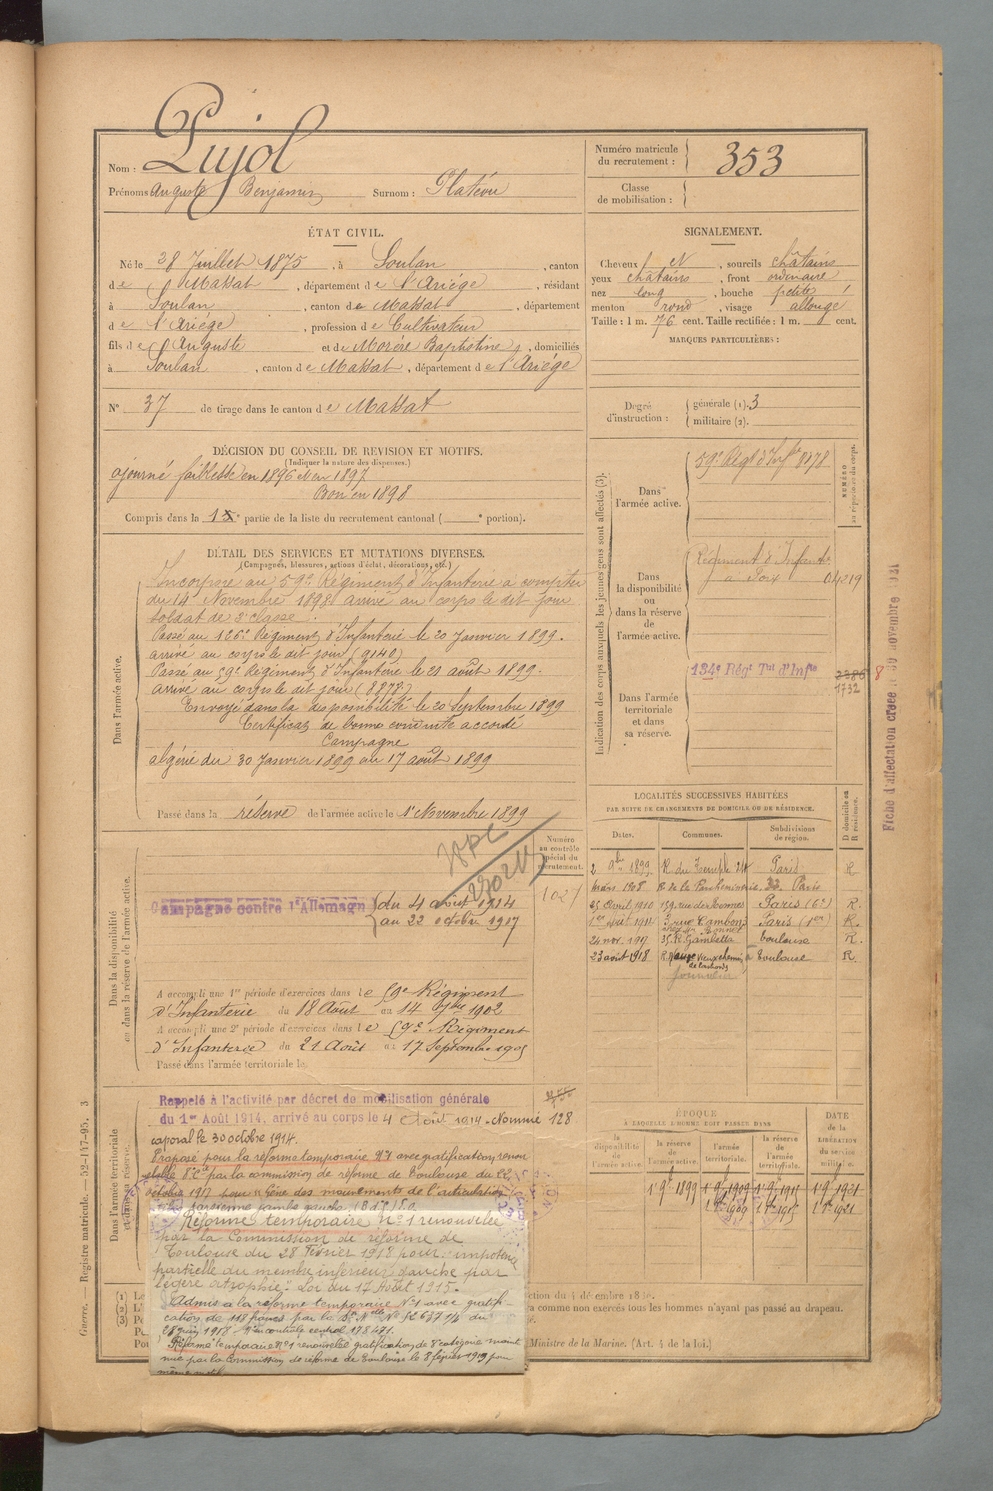 Nom : Pujol
Prénoms Auguste Benjamin Surnom :
Numéro matricule
du recrutement : 353
Classe
de mobilisation :
ÉTAT CIVIL.
Né le 28 Juillet 1875, à Soulan, canton
de Massat, département de l'Ariége, résidant
à Soulan, canton de Massat, département
de l'Ariége, profession de Cultivateur
fils de Auguste et de Morère Baptistine, domiciliés
à Soulan, canton de Massat, département de l'Ariége
N° 37 de tirage dans le canton de Massat
SIGNALEMENT.
Cheveux et, sourcils châtains
yeux châtains, front ordinaire
nez long, bouche petite
menton rond, visage allongé
Taille : 1 m. 76 cent. Taille rectifiée : 1 m. cent.
MARQUES PARTICULIÈRES :
Degré
d'instruction :
générale (1). 3
militaire (2).
DÉCISION DU CONSEIL DE REVISION ET MOTIFS.
(Indiquer la nature des dispenses.)
ajourné faiblesse en 1896 et en 1897
Bon en 1898
Compris dans la 1e partie de la liste du recrutement cantonal ( e portion).
DÉTAIL DES SERVICES ET MUTATIONS DIVERSES.
(Campagnes, blessures, actions d'éclat, décorations, etc.)
Dans l'armée active.
Incorporé au 59e Régiment d'Infanterie à compter
du 14 Novembre 1898 arrivé au corps le dit jour
soldat de 2e classe.
Passé au 126e Régiment d'Infanterie le 20 Janvier 1899.
arrivé au corps le dit jour (9140)
Passé au 59e Régiment d'Infanterie le 21 août 1899.
arrivé au corps le dit jour (8278)
Envoyé dans la disponibilité le 20 Septembre 1899
Certificat de bonne conduite accordé
Campagne
algérie du 30 Janvier 1899 au 17 août 1899
Passé dans la réserve de l'armée active le 1er Novembre 1899
Indication des corps auxquels les jeunes gens sont affectés (3).
NUMÉRO
au répertoire du corps.
Dans
l'armée active.
59e Régt d'Infrie 8178
Dans
la disponibilité
ou
dans la réserve
de
l'armée active.
Régiment d'Infanterie
à Foix 04219
Dans l'armée
territoriale
et dans
sa réserve.
134e Régt Tal d'Infie
1732
8
Fiche d'affectation créée le novembre 1931
LOCALITÉS SUCCESSIVES HABITÉES
PAR SUITE DE CHANGEMENTS DE DOMICILE OU DE RÉSIDENCE.
Dates. Communes. Subdivisions de région. D domicile ou R résidence.
2 9bre 1899 R. du Temple 214 Paris R
mars 1908 R de la Parcheminerie, 22 Paris
25 Avril 1910 Paris (6e) R.
1er avril 1914 3 rue Cambon Paris (1er) R.
24 nov. 1917 35 R. Gambetta Toulouse R.
23 août 1918 Toulouse R
Dans la disponibilité
ou dans la réserve de l'armée active.
Numéro
au contrôle
spécial du
recrutement.
1021
Campagne contre l'Allemagne du 4 août 1914
au 22 octobre 1917
A accompli une 1re période d'exercices dans le 59e Régiment
d'Infanterie du 18 Août au 14 7bre 1902
A accompli une 2e période d'exercices dans le 59e Régiment
d'Infanterie du 21 Août au 17 Septembre 1905
Passé dans l'armée territoriale le
Dans l'armée territoriale
et dans sa réserve.
Rappelé à l'activité par décret de mobilisation générale
du 1er Août 1914, arrivé au corps le 4 Août 1914. Nommé 128
caporal le 30 octobre 1914.
Proposé pour la réforme temporaire N°1 avec gratification renou
velable 8e Cie par la commission de réforme de Toulouse du 22
octobre 1917 pour « Gêne des mouvements de l'articulation
Réforme temporaire N° 1 renouvelée
par la Commission de réforme de
Toulouse du 28 Février 1918 pour : impotence
partielle du membre inférieur gauche par
légère atrophie". Loi du 17 Août 1915.
Admis à la réforme temporaire N°1 avec gratifi-
cation de 118 francs par la
Réforme temporaire N°1 renouvelée gratification de 8e catégorie maint
nue par la Commission de réforme de Toulouse le 8 février 1919 pour
ÉPOQUE
À LAQUELLE L'HOMME DOIT PASSER DANS
DATE
de la
LIBÉRATION
du
service
militaire.
la disponibilité de l'armée active.
la réserve de l'armée active.
l'armée territoriale.
la réserve de l'armée territoriale.
1er 9bre 1899 1er 9bre 1909 1er 9bre 1915 1er 9bre 1921
1er 8bre 1909 1er 8bre 1915 1er 8bre 1921
ction du 4 décembre 1890.
ra comme non exercés tous les hommes n'ayant pas passé au drapeau.
Ministre de la Marine. (Art. 4 de la loi.)
Guerre. — Registre matricule. — 52-147-95. 3